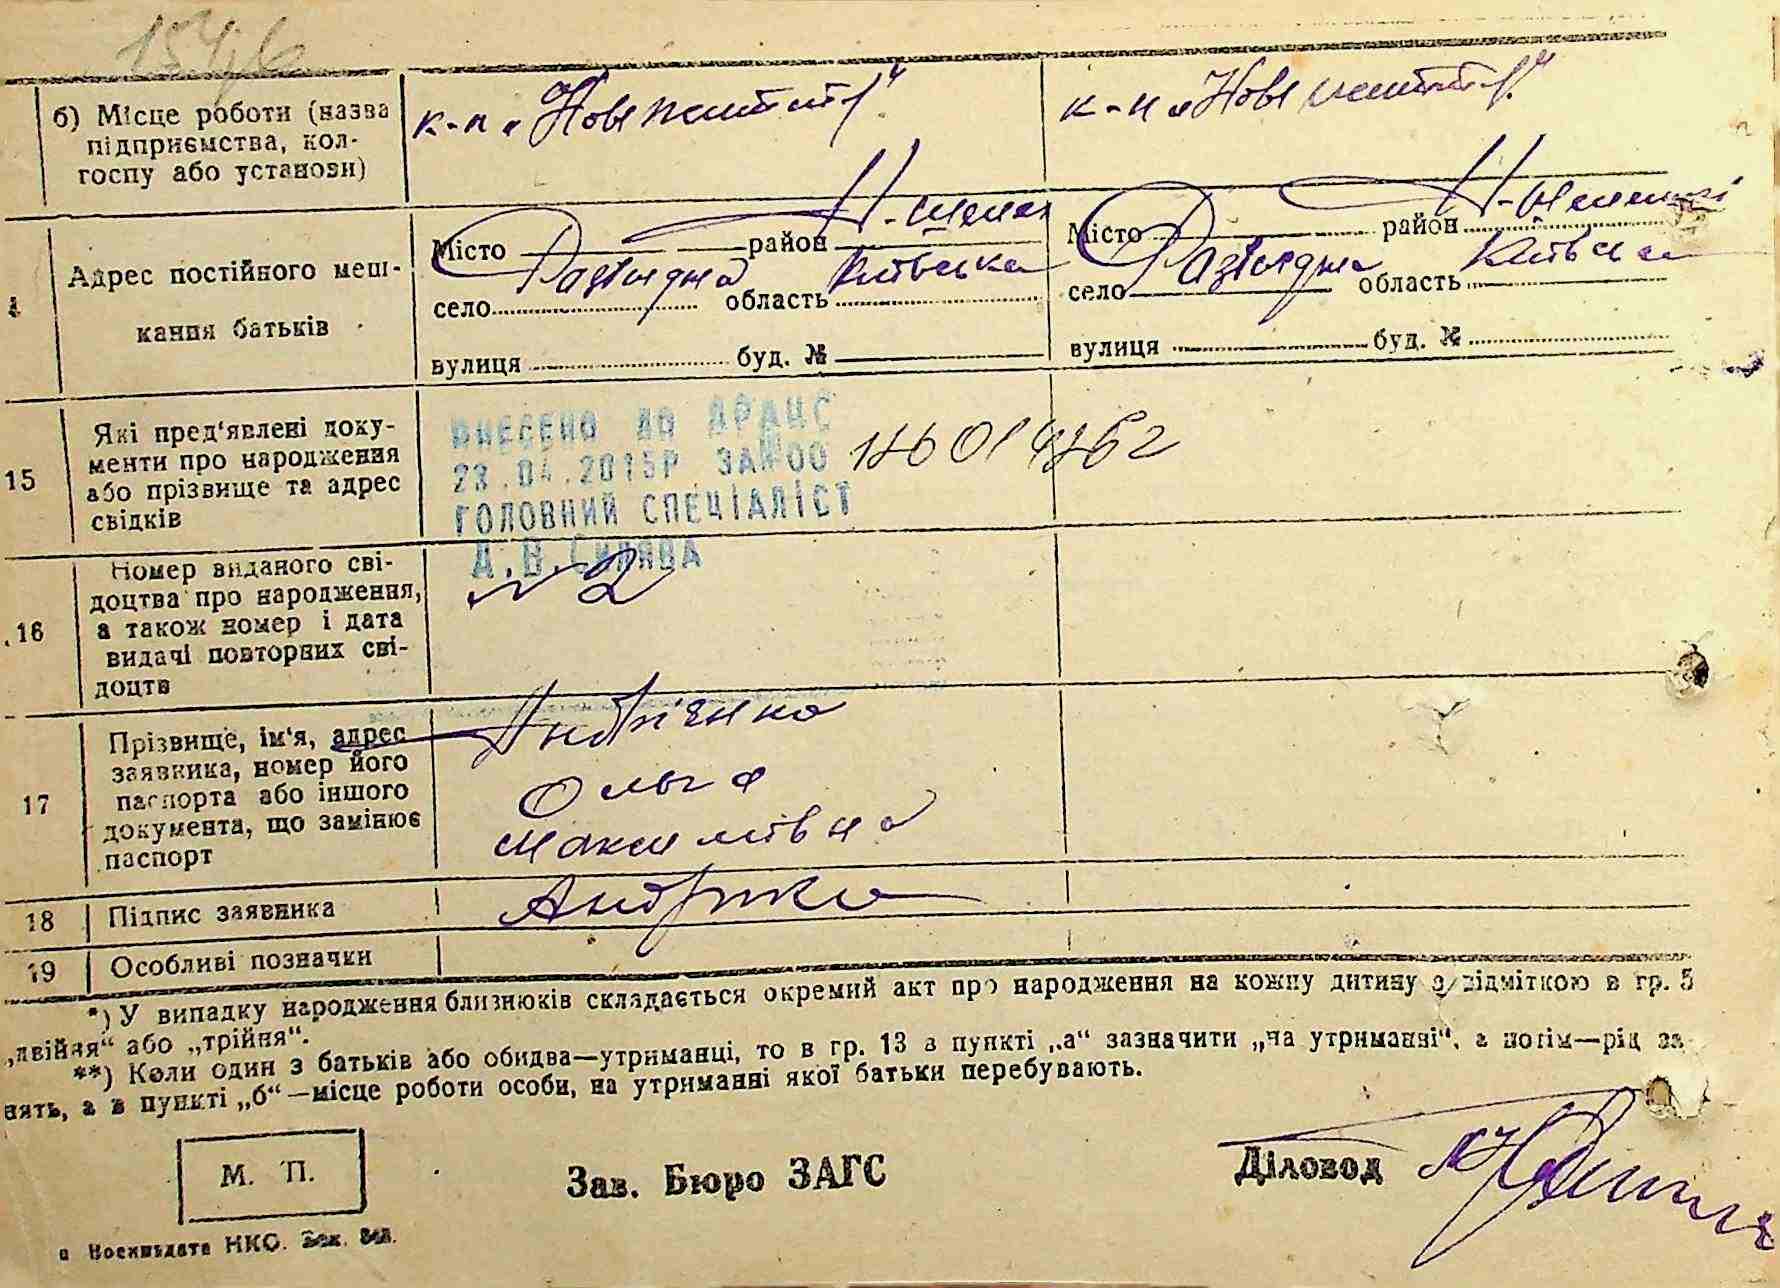 154,6
б) Місце роботи (назва підприємства, колгоспу або установи)
к-п „Нове життя“
к-п „Нове життя“
Адрес постійного мешкання батьків
Місто район
село Розіїзджа область Київська
вулиця буд. №
Місто район
село область Київська
вулиця буд. №
15
Які пред'явлені документи про народження або прізвище та адрес свідків
ВНЕСЕНО ДО ДРАЦС
23.04.2015Р ЗА №00
ГОЛОВНИЙ СПЕЦІАЛІСТ
16
Номер виданого свідоцтва про народження, а також номер і дата видачі повторних свідоцтв
№ 2
17
Прізвище, ім'я, адрес заявника, номер його паспорта або іншого документа, що замінює паспорт
Андрієнко
Ольга
Максимівна
18
Підпис заявника
19
Особливі позначки
*) У випадку народження близнюків складається окремий акт про народження на кожну дитину з відміткою в гр. 5
„двійня“ або „трійня“.
**) Коли один з батьків або обидва—утриманці, то в гр. 13 в пункті „а“ зазначити „на утриманні“, а потім—рід за-
нять, а в пункті „б“—місце роботи особи, на утриманні якої батьки перебувають.
М. П.
Зав. Бюро ЗАГС
Діловод